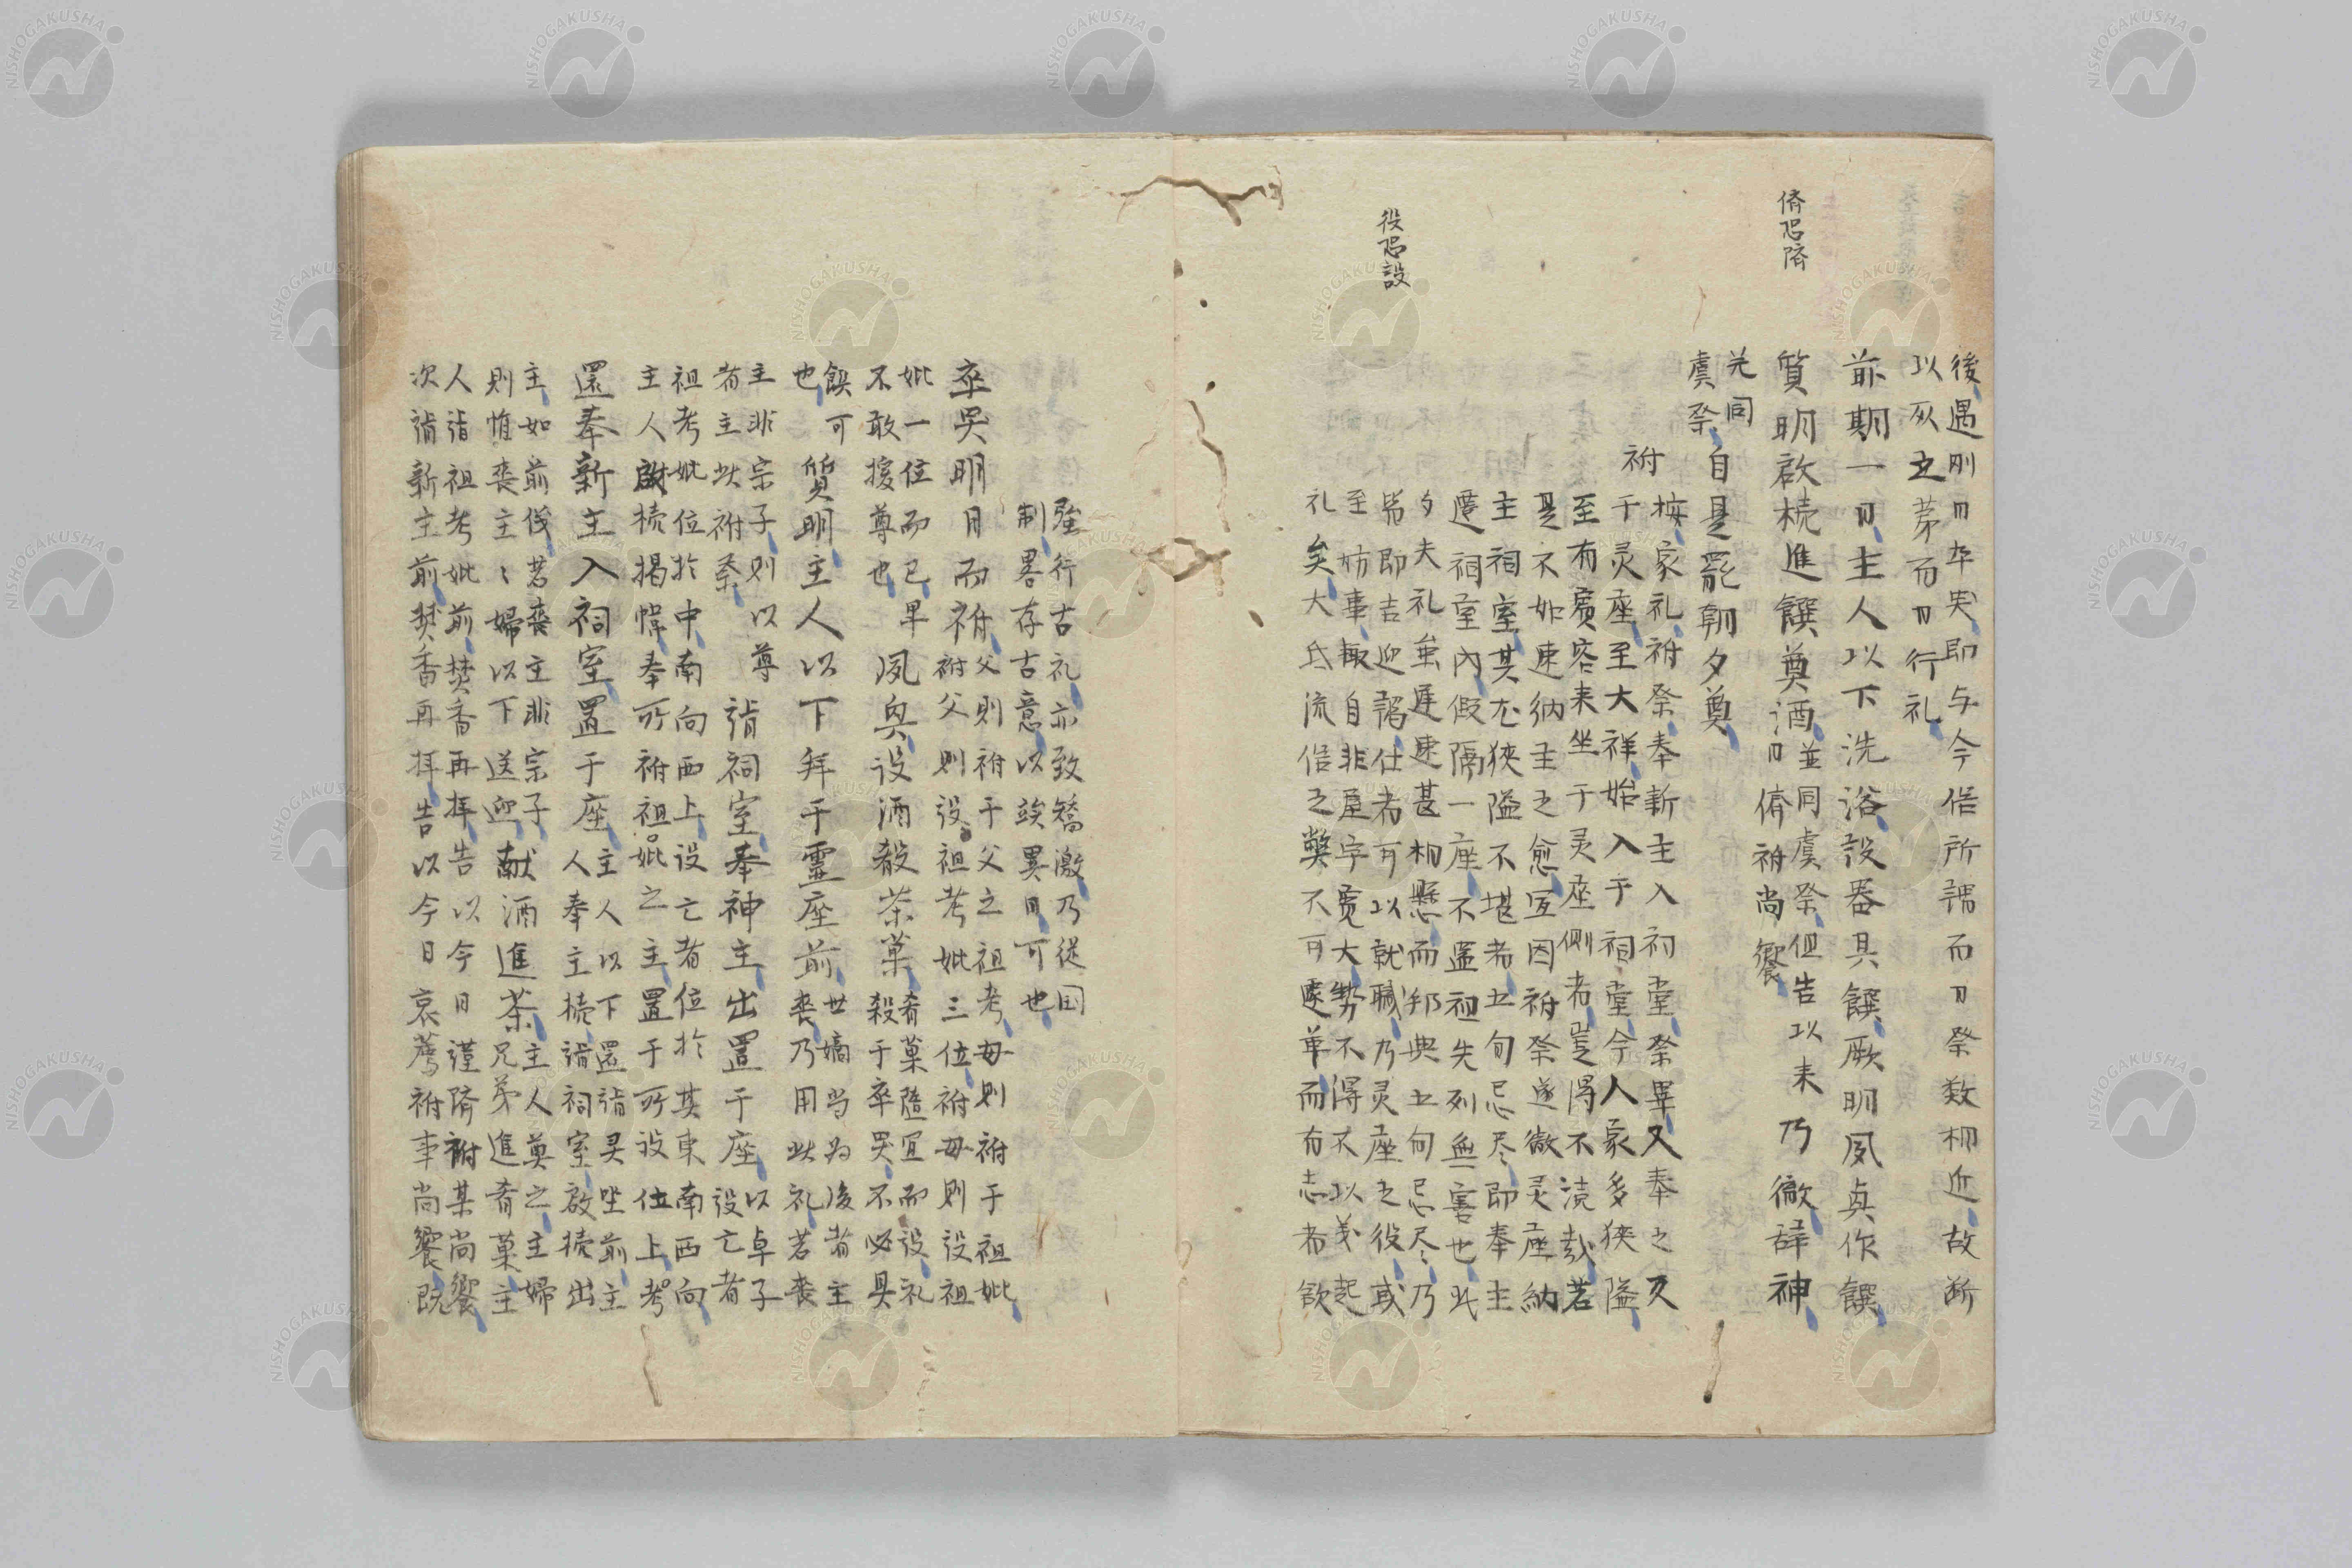 後遇剛日卒哭即与今俗所謂而日祭数相近故断
以灰之第而日行礼
前期一日主人以下洗浴設器具饌厥明夙興作饌
質明啟櫝進饌奠酒
並同虞祭但告以来
日儕祔尚饗
乃徹辞神
並同
虞祭
自是罷朝夕奠
儕恐隮
祔
按家礼祔祭奉新主入祠堂祭畢又奉之反
于灵座至大祥始入于祠堂今人家多狭隘
至有賓客来坐于灵座側者豈得不涜哉若
是不如速納主之愈宜因祔祭遂徹灵座納
主祠室其尤狭隘不堪者五旬忌尽即奉主
遷祠室内假隔一座不遽袒失列無害也此
夕夫礼虽遅速甚相懸而邦典五旬忌尽乃
爲即吉迎謁仕者可以就職乃灵座之役或
至妨事輙自非屋宇寛大勢不得不以義起
礼矣大氐流俗之弊不可遽革而有志者欲
役恐設
強行古礼亦致矯激乃従国
制畧存古意以竢異日可也
卒哭明日而祔
父則祔于父之祖考母則祔于祖妣
祔父則設祖考妣三位祔母則設祖
妣一位而已
不敢援尊也
早夙興设酒殽茶菓
肴菓隨宜而设礼
殺于卒哭不必具
饌可
也
質明主人以下拜于靈座前
世嫡当為後者主
喪乃用此礼若喪
主非宗子則以尊
者主此祔祭
詣祠室奉神主出置于座
以卓子
设亡者
祖考妣位於中南向西上设亡者位於其東南西向
主人啟櫝揭幃奉所祔祖妣之主置于所设位上考
還奉新主入祠室置于座
主人以下還詣灵坐前主
人奉主櫝詣祠室啟櫝出
主如前儀若喪主非宗子
則惟喪主〻婦以下送迎
献酒進茶
主人奠之主婦
兄弟進肴菓主
人詣祖考妣前焚香再拝告以今日謹隮祔某尚饗
次詣新主前焚香再拝告以今日哀薦祔事尚饗既